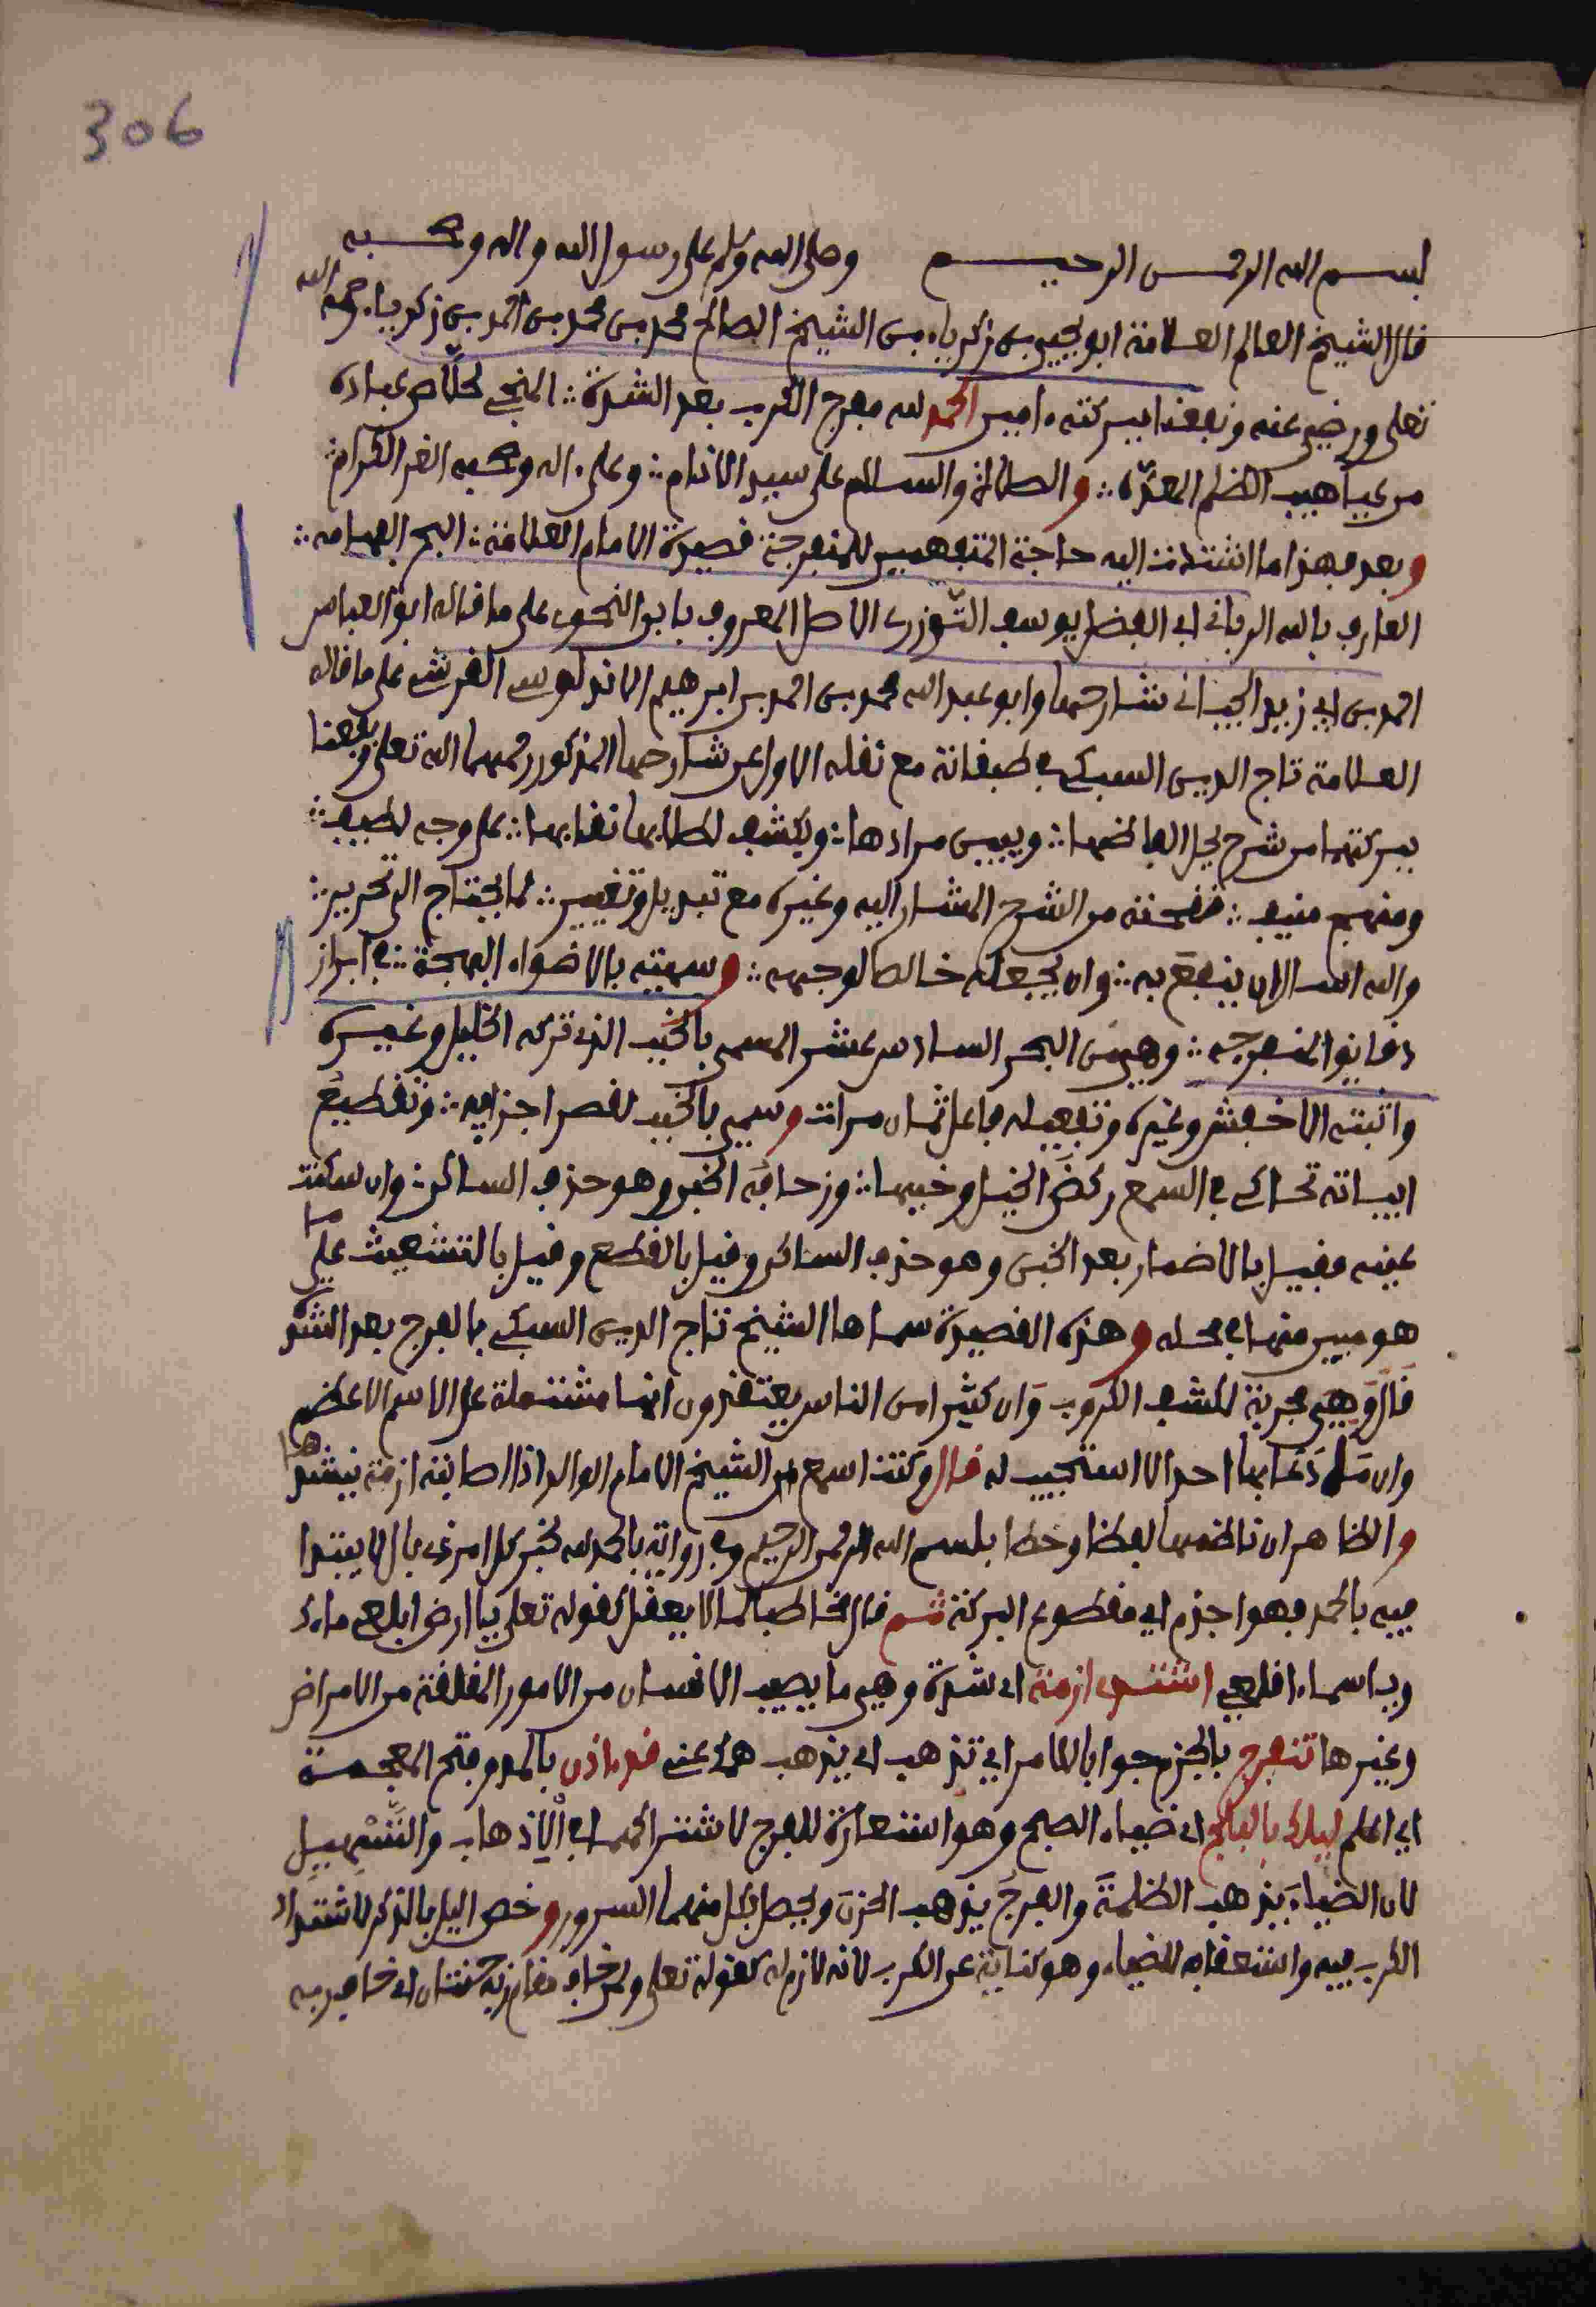 306
بسم الله الرحمن الرحيم وصلى الله وسلم على رسول الله واله وصحبه
قال الشيخ العالم العلامة ابو يحيى بن زكرياء بن الشيخ الصالح محمد بن محمد بن احمد بن زكرياء رحمه الله
تعلى ورضي عنه ونفعنا ببركته ءامين الحمد لله مفرج الكرب بعد الشدة المنجي لخلاص عباده
من غياهب الظلم المعدة والصلاة والسلام على سيد الانام وعلى ءاله وصحبه الغر الكرام
وبعد فهذا ما اشتدت اليه حاجة المتفهمين للمنفرجة قصيدة الامام العلامة البحر الفهامه
العارف بالله الرباني ابي الفضل يوسف التوزري الاصل المعروف بابن النحوي على ما قاله ابو العباس
احمد بن ابي زيد البجائي شارحها وابو عبد الله محمد بن احمد بن ابرهيم الاندلوسي القرشي على ما قاله
العلامة تاج الدين السبكي في طبقاته مع نقله الاول عن شارحها المذكور رحمهما الله تعلى ونفعنا
ببركتهما من شرح يحل الفاظها ويبين مرادها ويكشف لطلابها نقابها على وجه لطيف
ومنهج منيف لخصته من الشرح المشار اليه وغيره مع تبديل وتغيير لما يحتاج الى تحرير
والله اسال ان ينفع به وان يجعله خالصا لوجهه وسميته بالاضواء البهجة في ابراز
دقايق المنفرجه وهي من البحر السادس عشر المسمى بالخبب الذي تركه الخليل وغيره
واثبته الاخفش وغيره وتفعيله فاعل ثمان مرات وسمي بالخبب لقصر اجزايه وتقطيع
ابياته تحاكي في السمع ركض الخيل وخببها وزحافه الخبن وهو حذف الساكن وان سكنت
عينه فقيل بالاضمار بعد الخبن وهو حذف الساكن وقيل بالقطع وقيل بالتشعيث على ما
هو مبين منها في محله وهذه القصيدة سماها الشيخ تاج الدين السبكي بالفرج بعد الشدة
قال وهي مجربة لكشف الكروب وان كثيرا من الناس يعتقدون انها مشتملة على الاسم الاعظم
وان ما دعا بها احد الا استجيب له قال وكنت اسمع من الشيخ الامام الوالد اذا اصابته ازمة ينشدها
والظاهر ان ناظمها لفظا وخطا ببسم الله الرحمن الرحيم وفي رواية بالحمد لله لخبر كل امر ذي بال لا يبتدا
فيه بالحمد فهو اجذم اي مقطوع البركة ثم قال مخاطبا لما لا يعقل كقوله تعلى يا ارض ابلعي ماءك
ويا سماء اقلعي اشتدي ازمة اي شدة وهي ما يصيب الانسان من الامور المقلقة من الامراض
وغيرها تنفرج بالجزم جوابا للامر اي تذهب اي يذهب همك عنك قد ءاذن بالمد وفتح المعجمة
اي اعلم ليلك بالبلج اي ضياء الصبح وهو استعارة للفرج لاشتراكهما في الاذهاب والتسهيل
لان الضياء يذهب الظلمة والفرج يذهب الحزن ويحصل بكل منهما السرور وخص اليل بالذكر لاشتداد
الكرب فيه واستعقابه للضياء وهو كناية عن الكرب لانه لازم له كقوله تعلى ولمن خاف مقام ربه جنتان اي خاف ربه